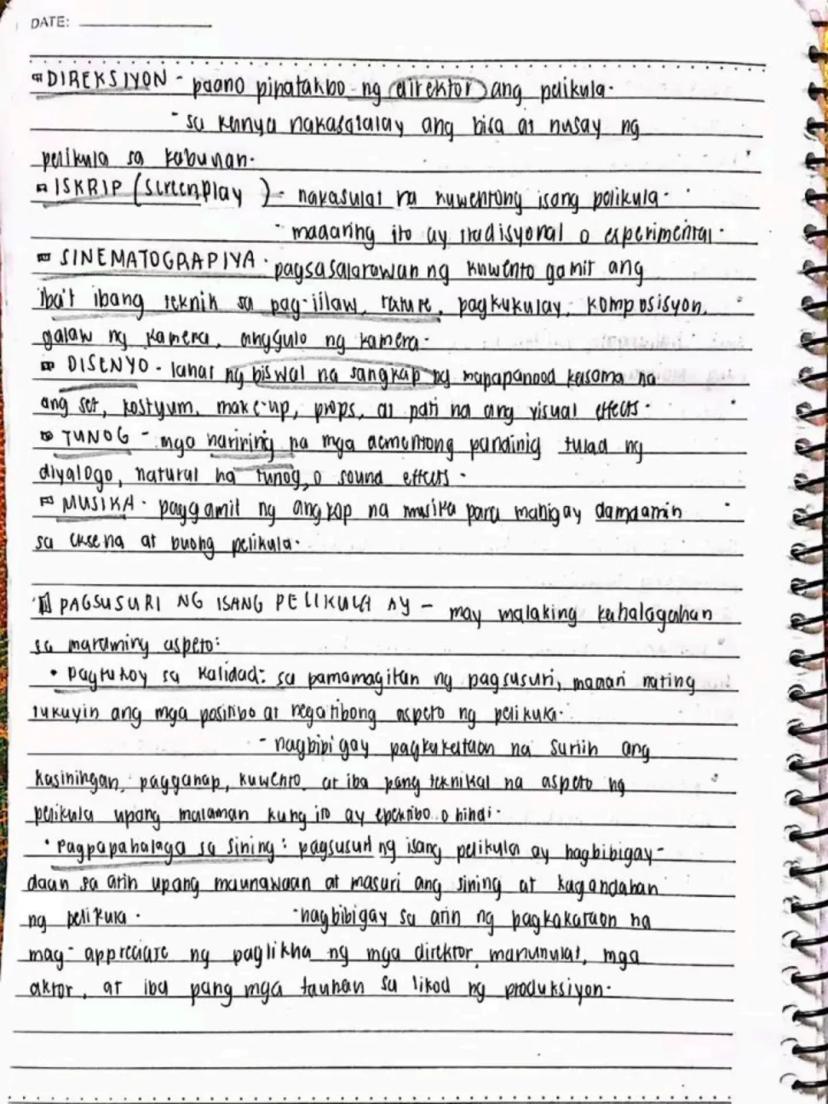 DATE:
DIREKSIYON - paano pinatakbo ng direktor ang pelikula.
- sa kanya nakasalalay ang bisa at husay ng
pelikula sa kabuuan.
ISKRIP (screenplay) - nakasulat na kuwentong isang pelikula.
- maaaring ito ay tradisyonal o experimental.
SINEMATOGRAPIYA - pagsasalarawan ng kuwento gamit ang
iba't ibang teknik sa pag-iilaw, pagkukulay, komposisyon,
galaw ng kamera, anggulo ng kamera.
DISENYO - lahat ng biswal na sangkap ng mapapanood kasama na
ang set, kostyum, make-up, props, at pati na ang visual effects.
TUNOG - mga naririnig na mga pandinig tulad ng
diyalogo, natural na tunog, o sound effects.
MUSIKA - paggamit ng angkop na musika para mabigay damdamin
sa eksena at buong pelikula.
PAGSUSURI NG ISANG PELIKULA AY - may malaking kahalagahan
sa maraming aspeto:
• Pagtukoy sa Kalidad: sa pamamagitan ng pagsusuri, maaari nating
tukuyin ang mga positibo at negatibong aspeto ng pelikula.
- nagbibigay pagkakataon na suriin ang
kasiningan, pagganap, kuwento, at iba pang teknikal na aspeto ng
pelikula upang malaman kung ito ay epektibo o hindi.
• Pagpapahalaga sa Sining: pagsusuri ng isang pelikula ay nagbibigay-
daan sa atin upang maunawaan at masuri ang sining at kagandahan
ng pelikula. - nagbibigay sa atin ng pagkakataon na
mag-appreciate ng paglikha ng mga direktor, manunulat, mga
aktor, at iba pang mga tauhan sa likod ng produksiyon.